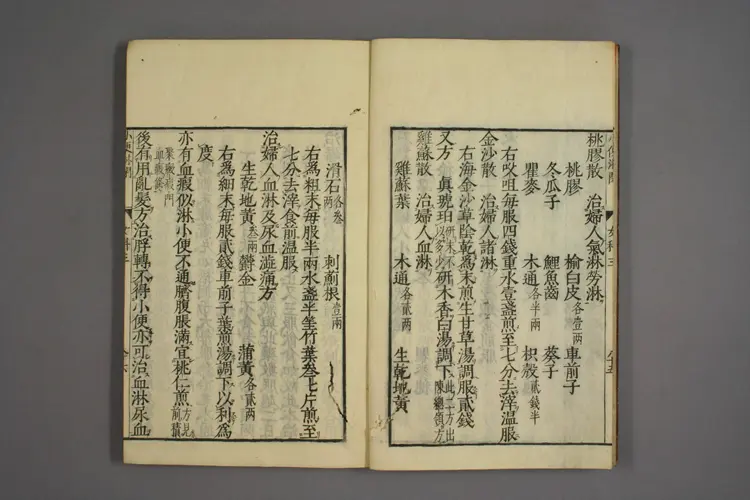 桃膠散 治婦人氣淋勞淋
桃膠 榆白皮各壹兩 車前子
冬瓜子 鯉魚齒 葵子
瞿麥 木通各半兩 枳殼貳錢半
右㕮咀每服四錢重水壹盞煎至七分去滓温服
金沙散 治婦人諸淋
右海金沙草陰乾爲末煎生甘草湯調服貳錢
又方 眞琥珀研末不以多少研木香曰湯調下此二方出陳總領方
雞蘇散 治婦人血淋
雞蘇葉 木通各貳兩 生乾地黃
滑石各叁兩 刺薊根壹兩
右爲粗末每服半兩水盞半竹葉叁七片煎至
七分去滓食前温服
治婦人血淋及尿血澁痛方
生乾地黃叁兩 欝金 蒲黃各貳兩
右爲細末每服貳錢車前子葉煎湯調下以利爲
度
亦有血瘕似淋小便不通臍腹脹滿宜桃仁煎方見前積
聚癥瘕門血瘕類
後有用亂髮方治脬轉不得小便亦可治血淋尿血
女科三
女科三